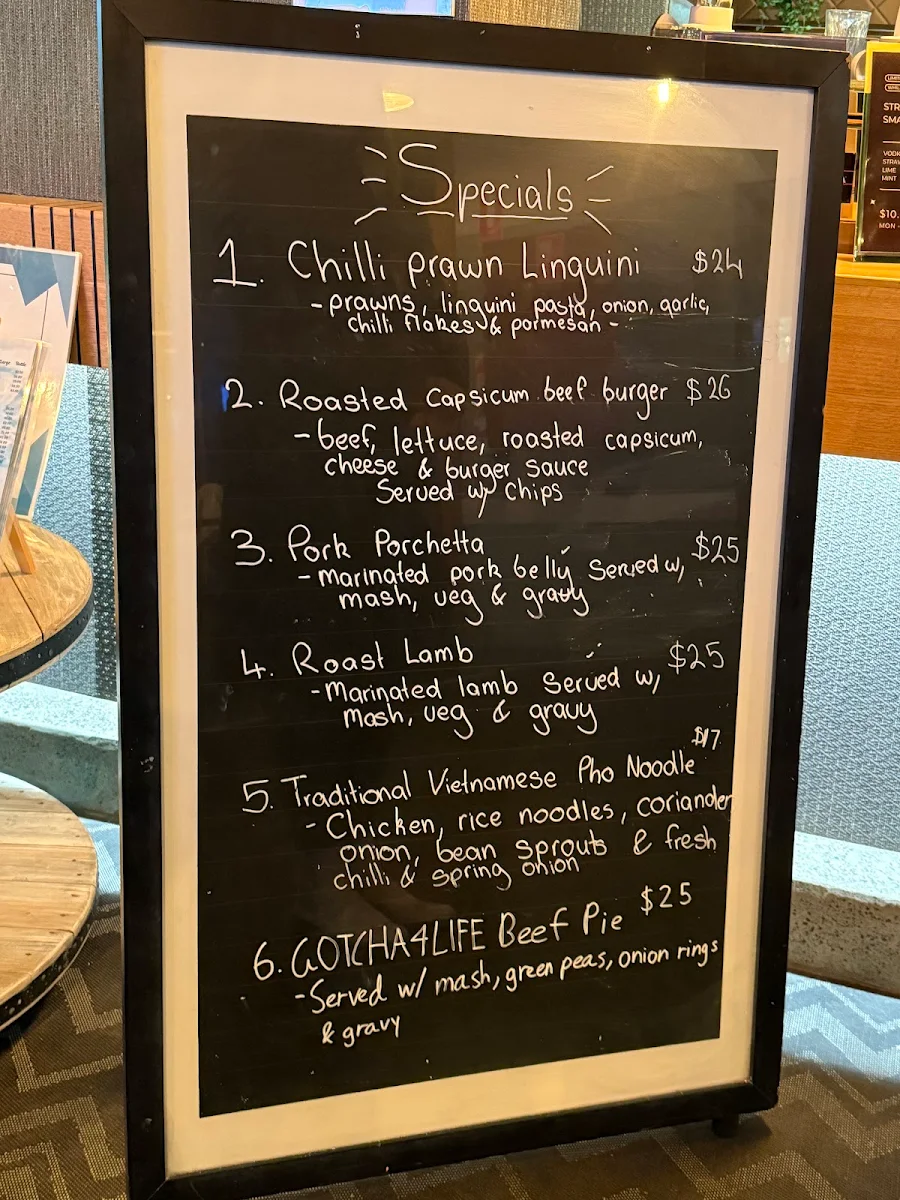 Specials
1. Chilli prawn Linguini $24
- prawns, linguini pasta, onion, garlic,
chilli flakes & parmesan -
2. Roasted Capsicum beef burger $26
- beef, lettuce, roasted capsicum,
cheese & burger sauce
Served w/ chips
3. Pork Porchetta $25
- marinated pork belly Served w,
mash, veg & gravy
4. Roast Lamb $25
- Marinated lamb Served w,
Mash, veg & gravy
$17
5. Traditional Vietnamese Pho Noodle
- Chicken, rice noodles, coriander
onion, bean sprouts & fresh
chilli & spring onion
6. GOTCHA4LIFE Beef Pie $25
- Served w/ mash, green peas, onion rings
& gravy
STR
SMA
VODK
STRAW
LIME
MINT
$10.
MON -